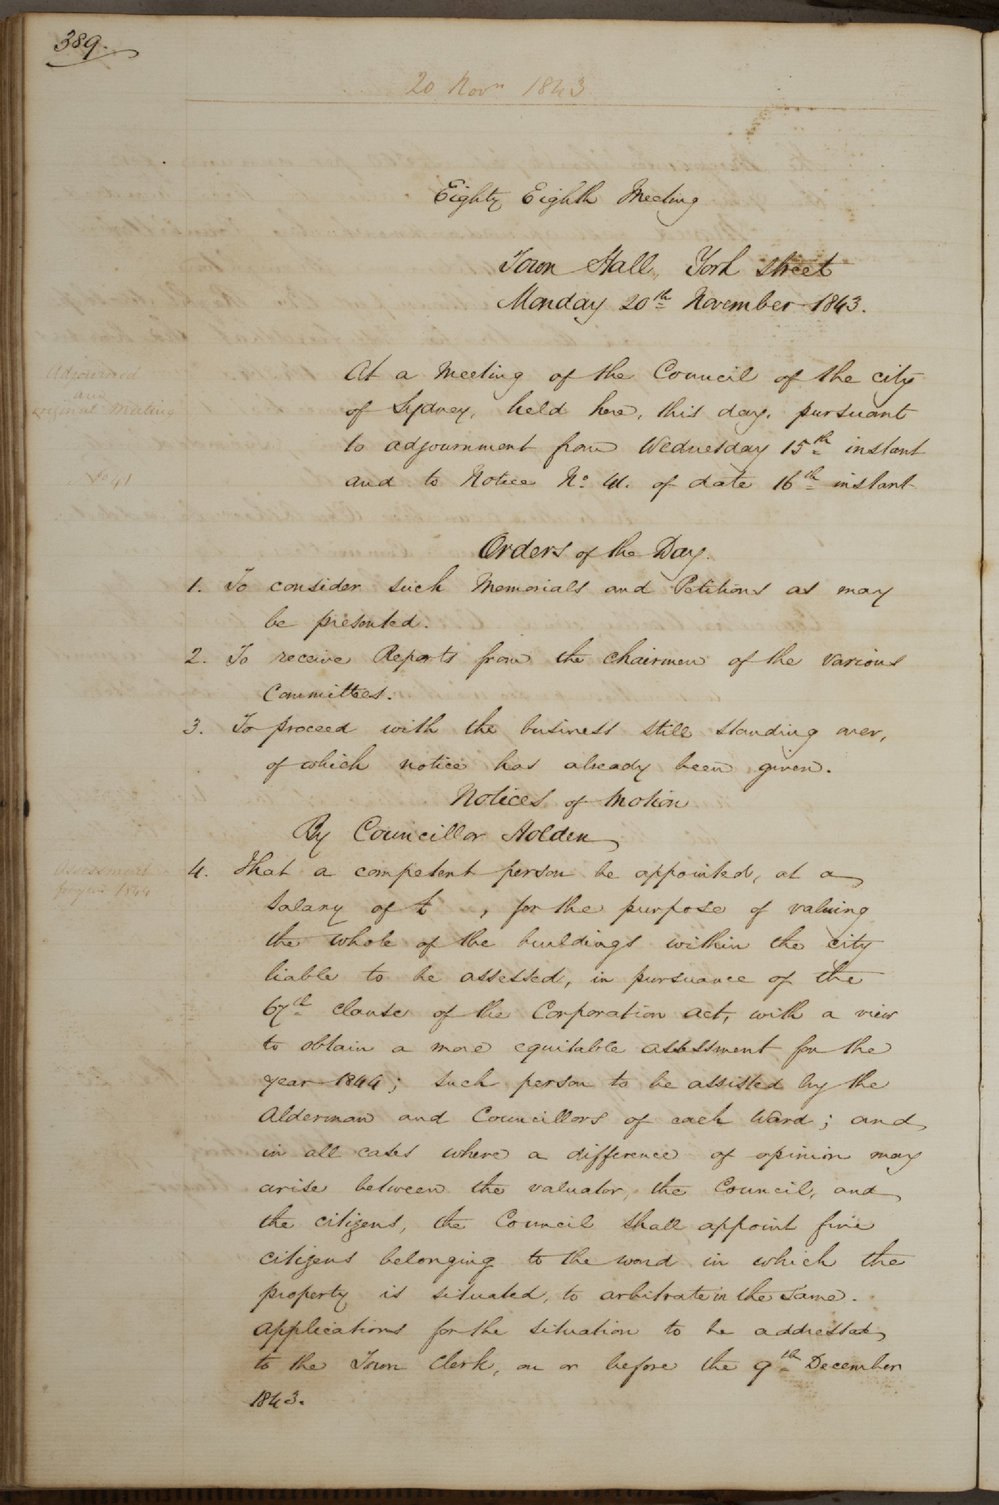 389.
20 Novr 1843
Eighty Eighth Meeting
Town Hall, York Street
Monday 20th November 1843.
Adjourned
and
original Meeting
No 41
At a Meeting of the Council of the city
of Sydney, held here, this day, pursuant
to adjournment from Wednesday 15th instant
and to Notice No. 41. of date 16th instant
Orders of the Day.
1. To consider such Memorials and Petitions as may
be presented.
2. To receive Reports from the Chairmen of the various
Committees.
3. To proceed with the business still standing over,
of which notice has already been given.
Notices of Motion
By Councillor Holden
Assessment
for year 1844
4. That a competent person be appointed, at a
Salary of £ , for the purpose of valuing
the whole of the buildings within the city
liable to be assessed, in pursuance of the
67th clause of the Corporation Act, with a view
to obtain a more equitable assessment for the
year 1844; such person to be assisted by the
Alderman and Councillors of each Ward; and
in all cases where a difference of opinion may
arise between the valuator, the Council, and
the citizens, the Council shall appoint five
citizens belonging to the ward in which the
property is situated, to arbitrate in the same.
Applications for the situation to be addressed
to the Town Clerk, on or before the 9th December
1843.